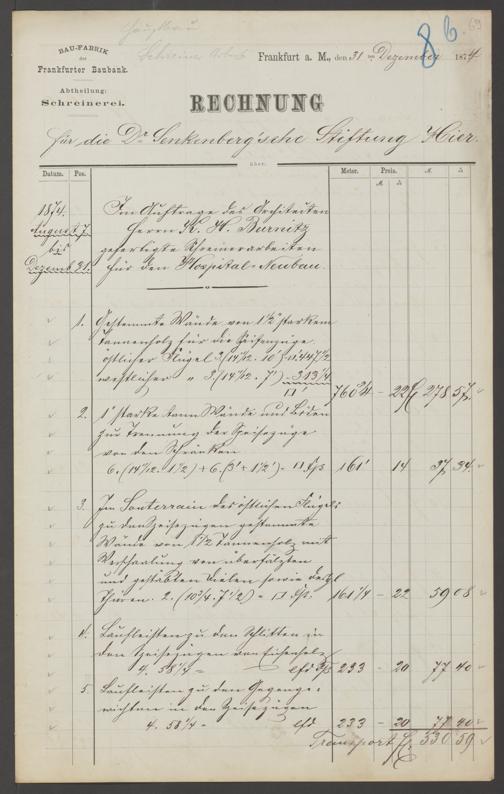 Hauptbau
Schreiner Arbeit
8 b. 69
BAU-FABRIK
der
Frankfurter Baubank.
Abtheilung:
Schreinerei.
Frankfurt a. M., den 31 ten Dezember 1874
RECHNUNG
für die Dr. Senkenberg'sche Stiftung Hier.
über
Datum. Pos. Meter. Preis. M. S.
M. S.
1874.
August 7.
bis
Dezemb 31.
Im Auftrage des Architecten
Herrn K. H. Burnitz
gefertigte Schreinerarbeiten
für den Hospital-Neubau.
1. Gestemmte Wände von 1½" starkem
Tannenholz für die Speisezüge.
östlicher Flügel
westlicher " 313¼
760¾ - 22 fl 278 57
2. 1" starke tann Wände und Böden
zur Trennung der Speisezüge
von den Schränken
161' 14 37 34
3. Im Souterrain des östlichen Flügels
zu den Speisezügen gestemmte
Wände von 1½ Tannenholz mit
Verschaalung von überfälzten
und gestäbten Dielen sowie
Thüren. 161¼ - 22 59 08
4. Laufleisten zu den Schlitten in
den Speisezügen von Eichenholz
4. 58¼ = 233 - 20 77 40
5. Laufleisten zu den Gegenge-
wichten in den Speisezügen
4. 58¼ = lfd 233 - 20 77 40
Transport fl. 530 59